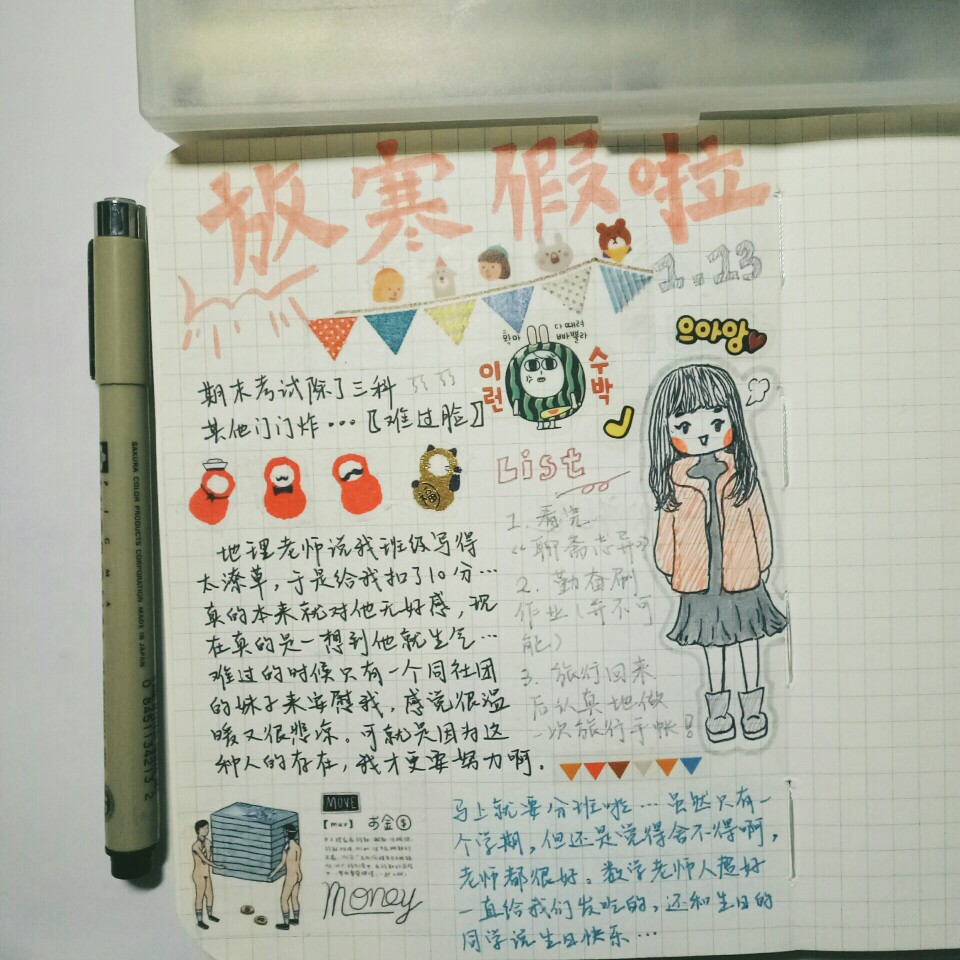 放寒假啦
1.23
期末考试除了三科
其他门门炸…【难过脸】
화나 다 때려
빠밸라
이런
수박
으아앙
List
1. 看完
《聊斋志异》
2. 勤奋刷
作业(并不可
能)
3. 旅行回来
后认真地做
一次旅行手帐!
地理老师说我班级写得
太潦草,于是给我扣了10分…
真的本来就对他无好感,现
在真的是一想到他就生气…
难过的时候只有一个同社团
的妹子来安慰我,感觉很温
暖又很悲凉。可就是因为这
种人的存在,我才更要努力啊.
MOVE
お金$
Money
马上就要分班啦…虽然只有一
个学期,但还是觉得舍不得啊,
老师都很好。数学老师人超好
一直给我们发吃的,还和生日的
同学说生日快乐…
SAKURA COLOR PRODUCTS CORPORATION MADE IN JAPAN